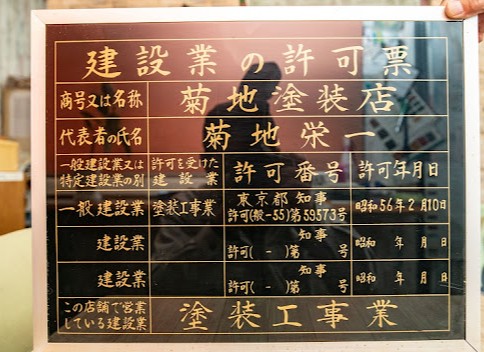 建設業の許可票
商号又は名称 菊地塗装店
代表者の氏名 菊地栄一
一般建設業又は特定建設業の別 許可を受けた建設業 許可番号 許可年月日
一般建設業 塗装工事業 東京都 知事 許可(般-55)第59573号 昭和56年2月10日
建設業 知事 許可( - )第 号 昭和 年 月 日
建設業 知事 許可( - )第 号 昭和 年 月 日
この店舗で営業している建設業 塗装工事業